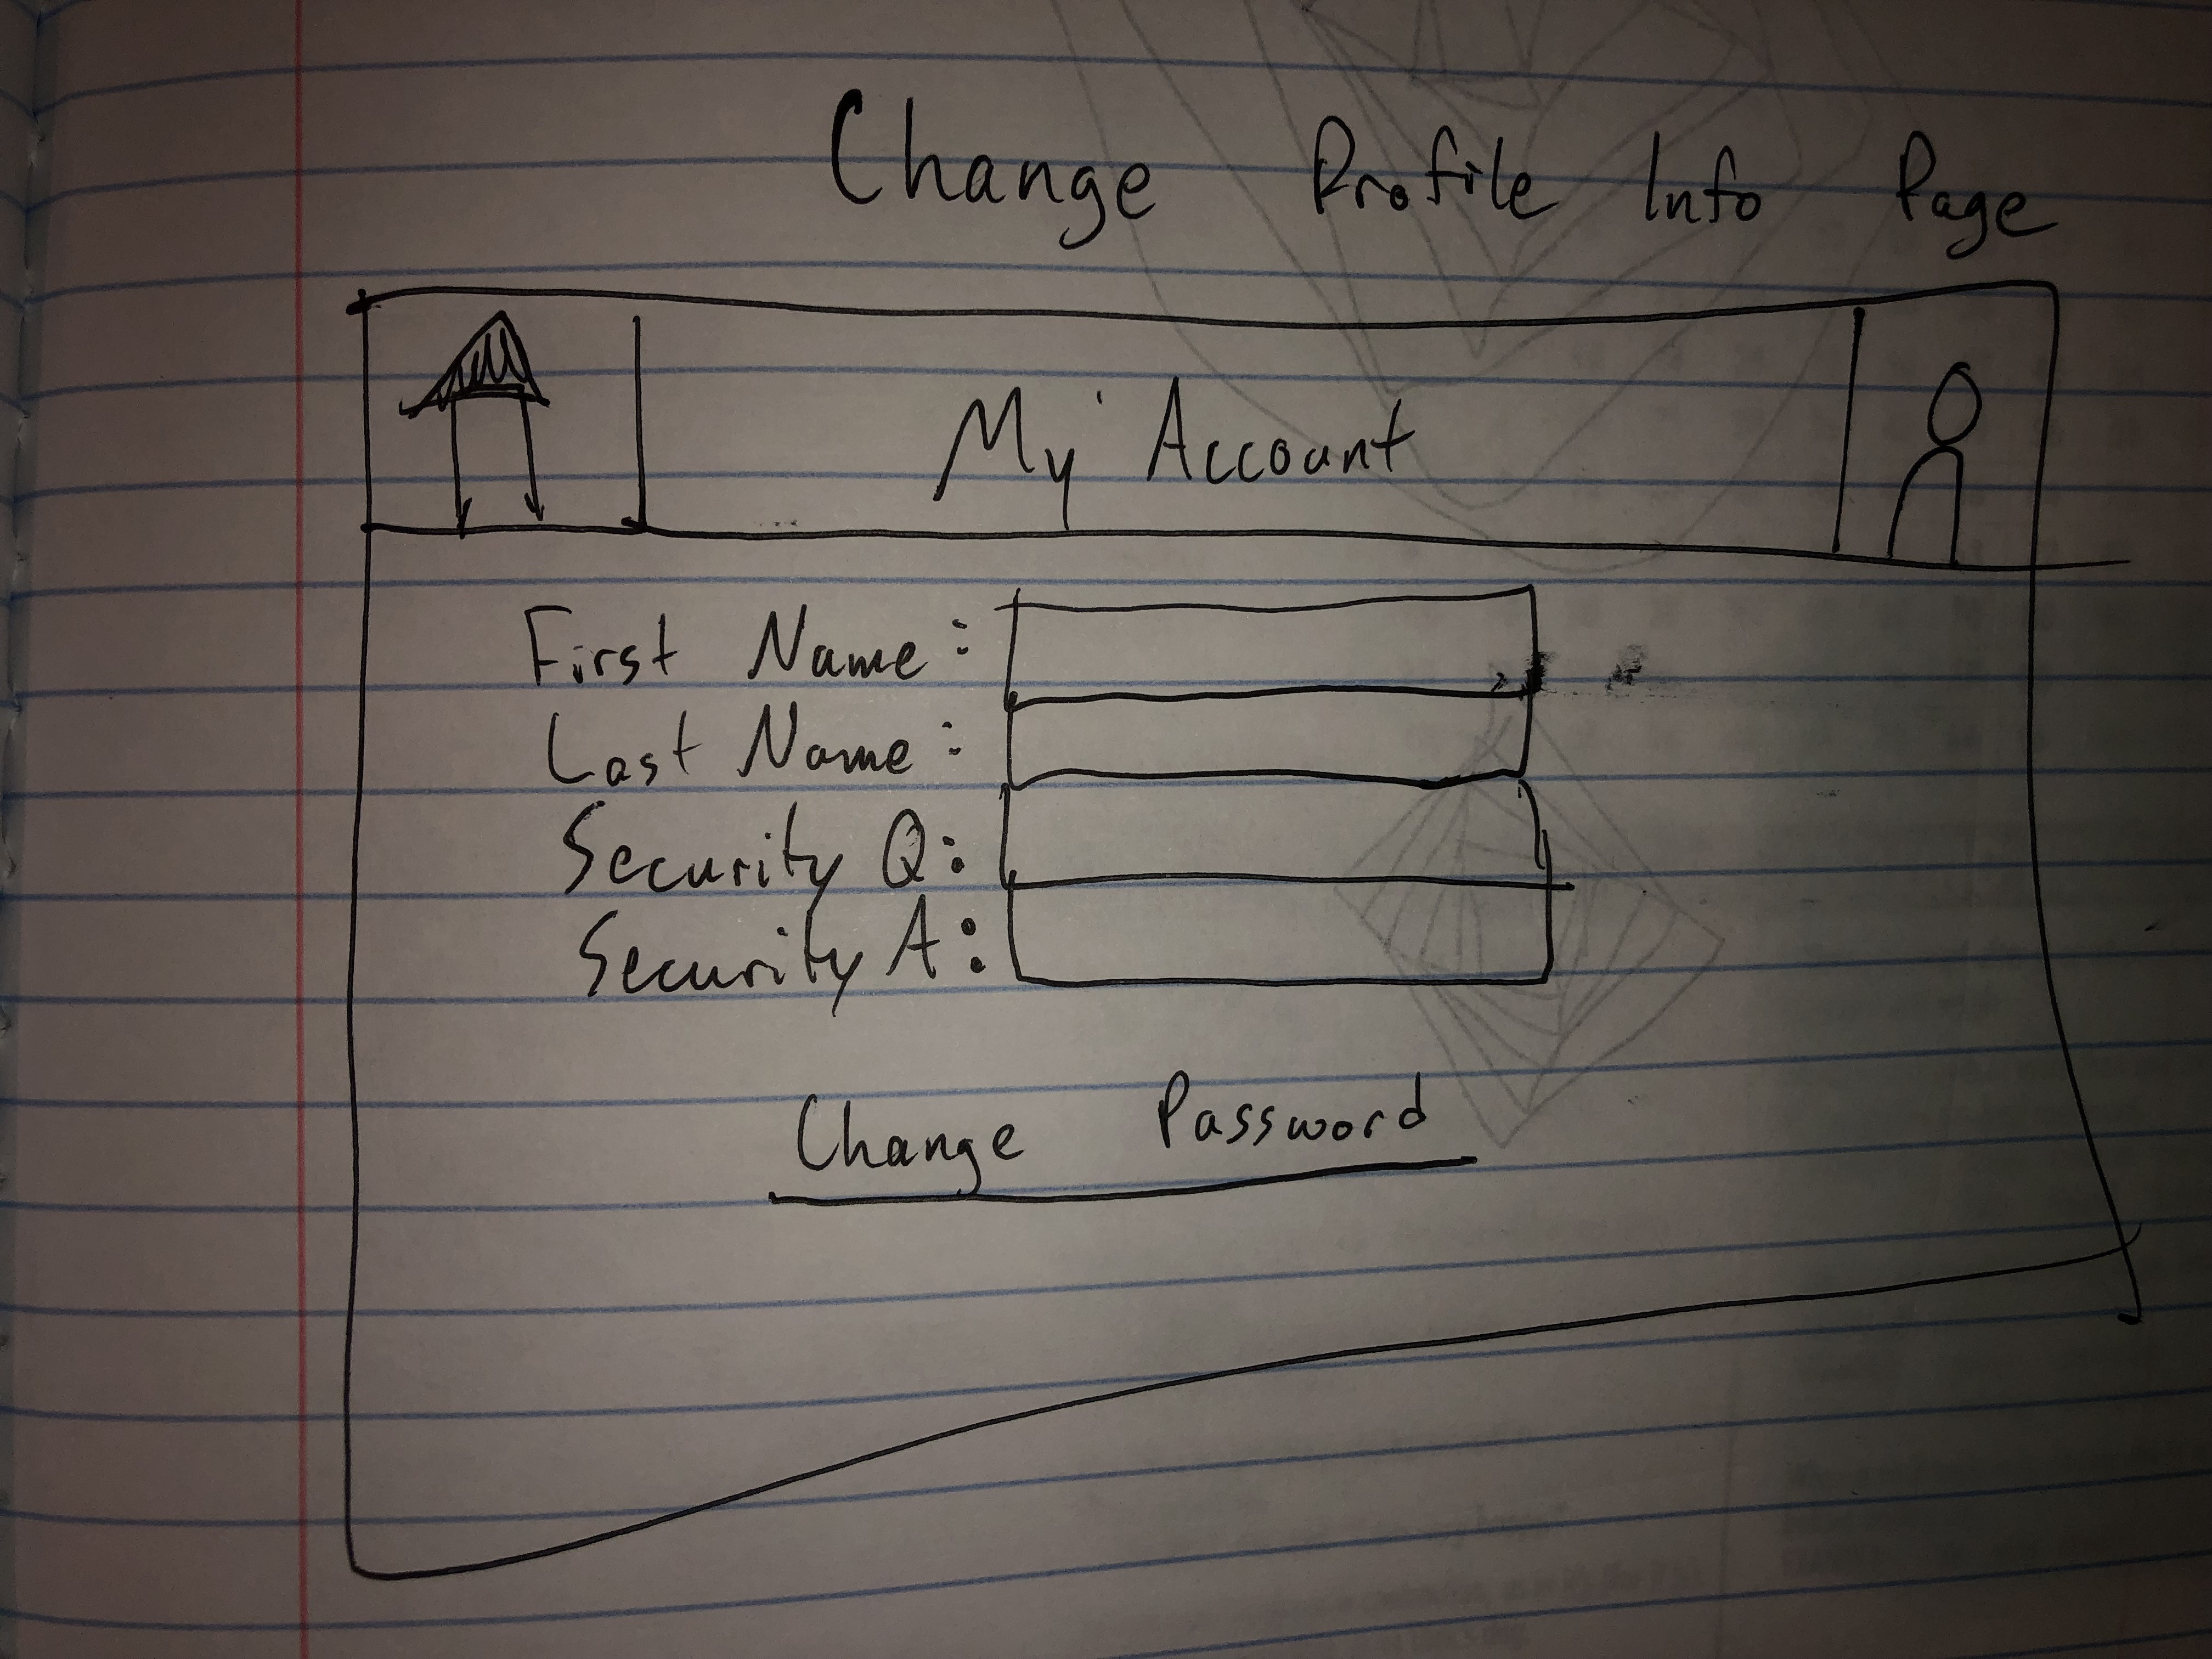 Change Profile Info Page
My Account
First Name:
Last Name:
Security Q:
Security A:
Change Password